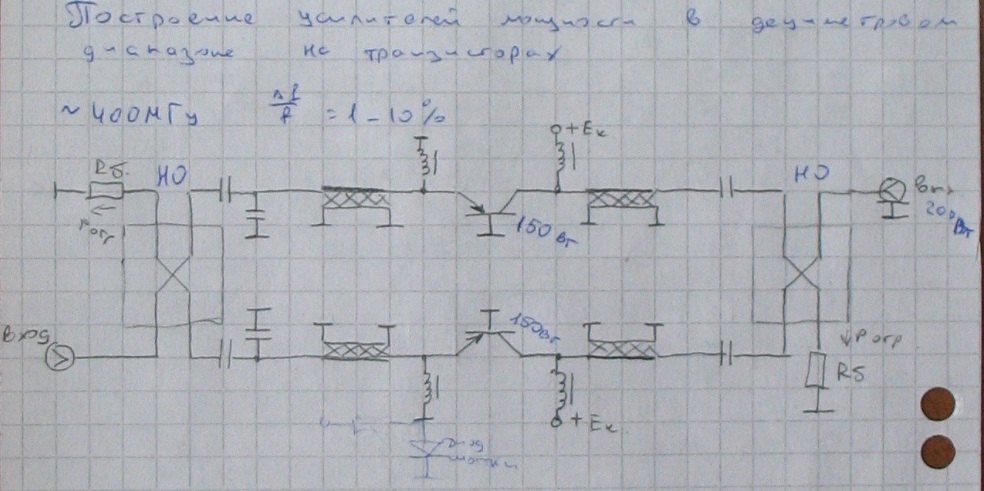 Построение усилителей мощности в дециметровом
диапазоне на транзисторах
~400МГц Δf/f = 1-10%
+Eк
Rб
НО
НО
Вых
200Вт
Pотр
150Вт
150Вт
Вход
Pотр
Rб
+Eк
Диод